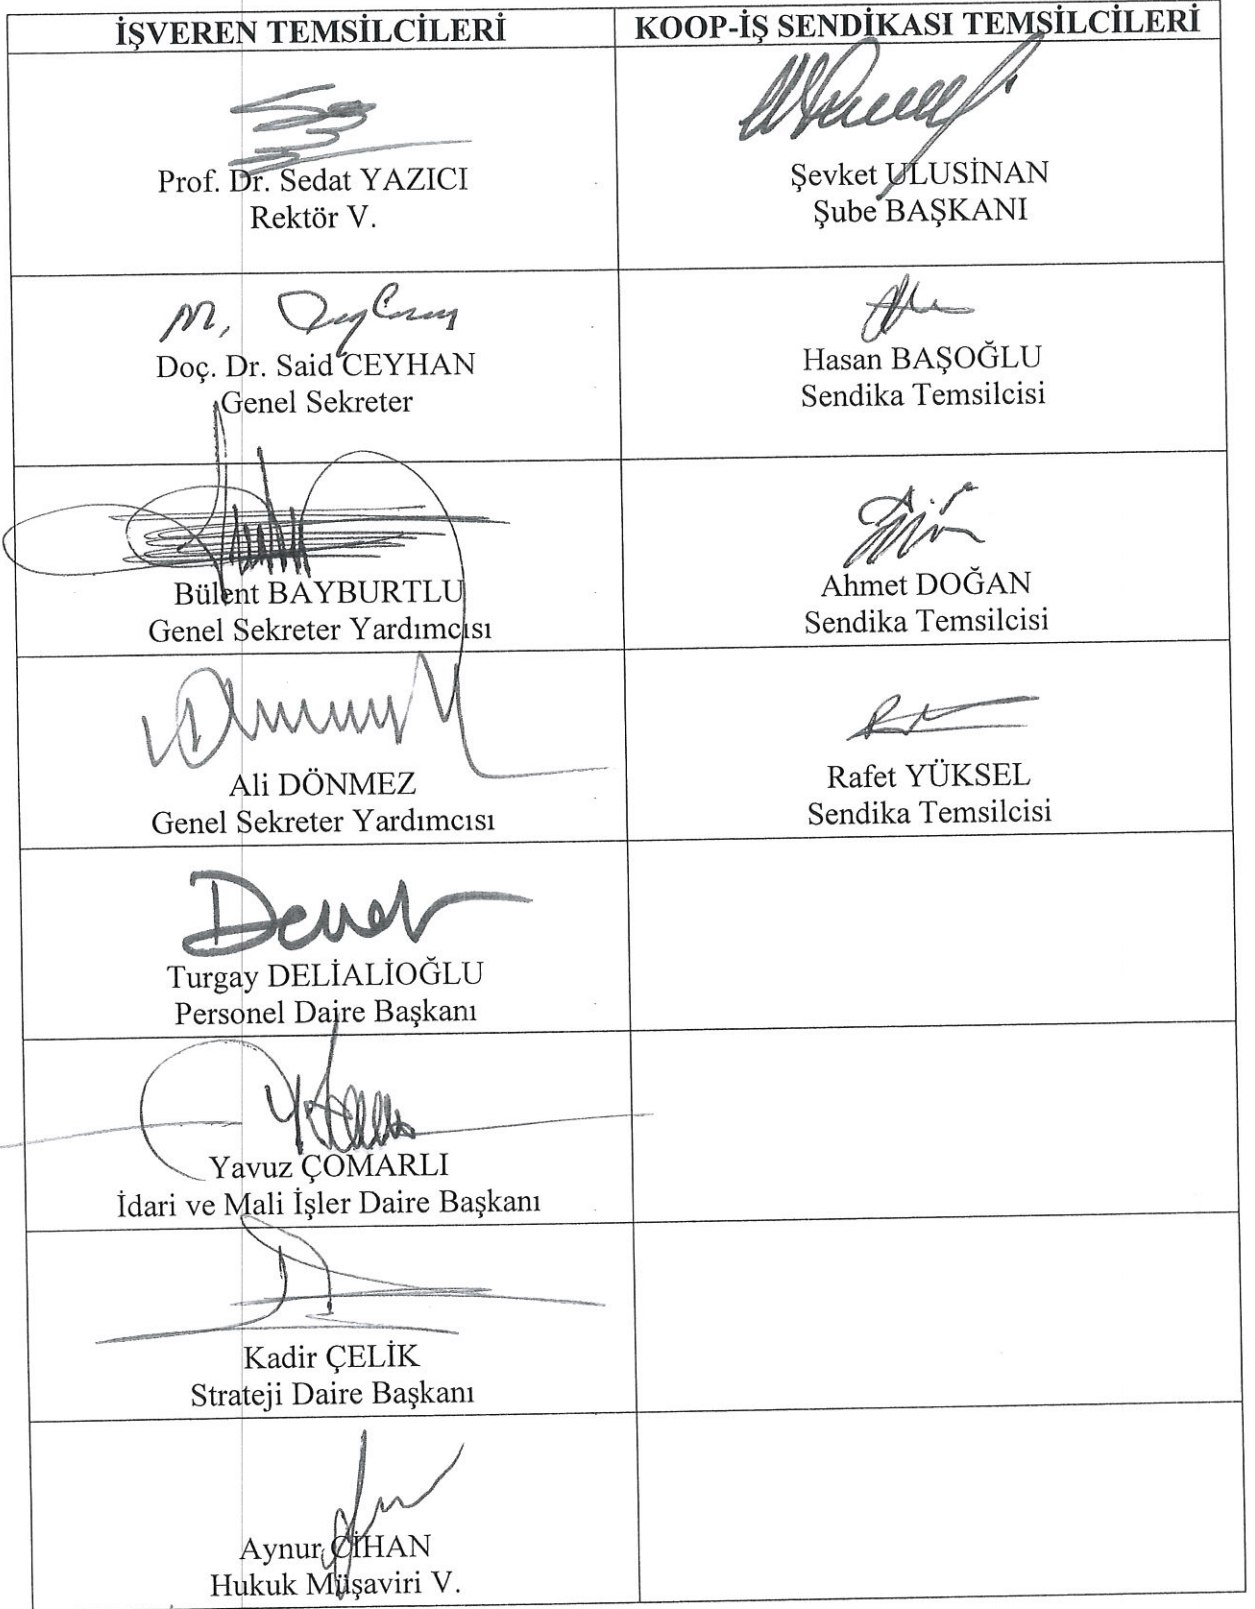 İŞVEREN TEMSİLCİLERİ
KOOP-İŞ SENDİKASI TEMSİLCİLERİ
Prof. Dr. Sedat YAZICI
Rektör V.
Şevket ULUSİNAN
Şube BAŞKANI
Doç. Dr. Said CEYHAN
Genel Sekreter
Hasan BAŞOĞLU
Sendika Temsilcisi
Bülent BAYBURTLU
Genel Sekreter Yardımcısı
Ahmet DOĞAN
Sendika Temsilcisi
Ali DÖNMEZ
Genel Sekreter Yardımcısı
Rafet YÜKSEL
Sendika Temsilcisi
Turgay DELİALİOĞLU
Personel Daire Başkanı
Yavuz ÇOMARLI
İdari ve Mali İşler Daire Başkanı
Kadir ÇELİK
Strateji Daire Başkanı
Aynur CİHAN
Hukuk Müşaviri V.